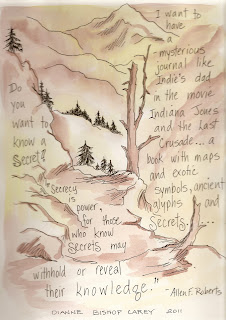 I want to
have
a
mysterious
journal like
Indie's dad
in the movie
Indiana Jones
and the Last
Crusade... a
book with maps
and exotic
symbols, ancient
glyphs and
Secrets.....
Do
you
want to
know a
Secret?
"Secrecy
is
a power,
for those
who know
Secrets may
withhold or reveal
their knowledge."
-Allen E. Roberts
DIANNE BISHOP CAREY 2011